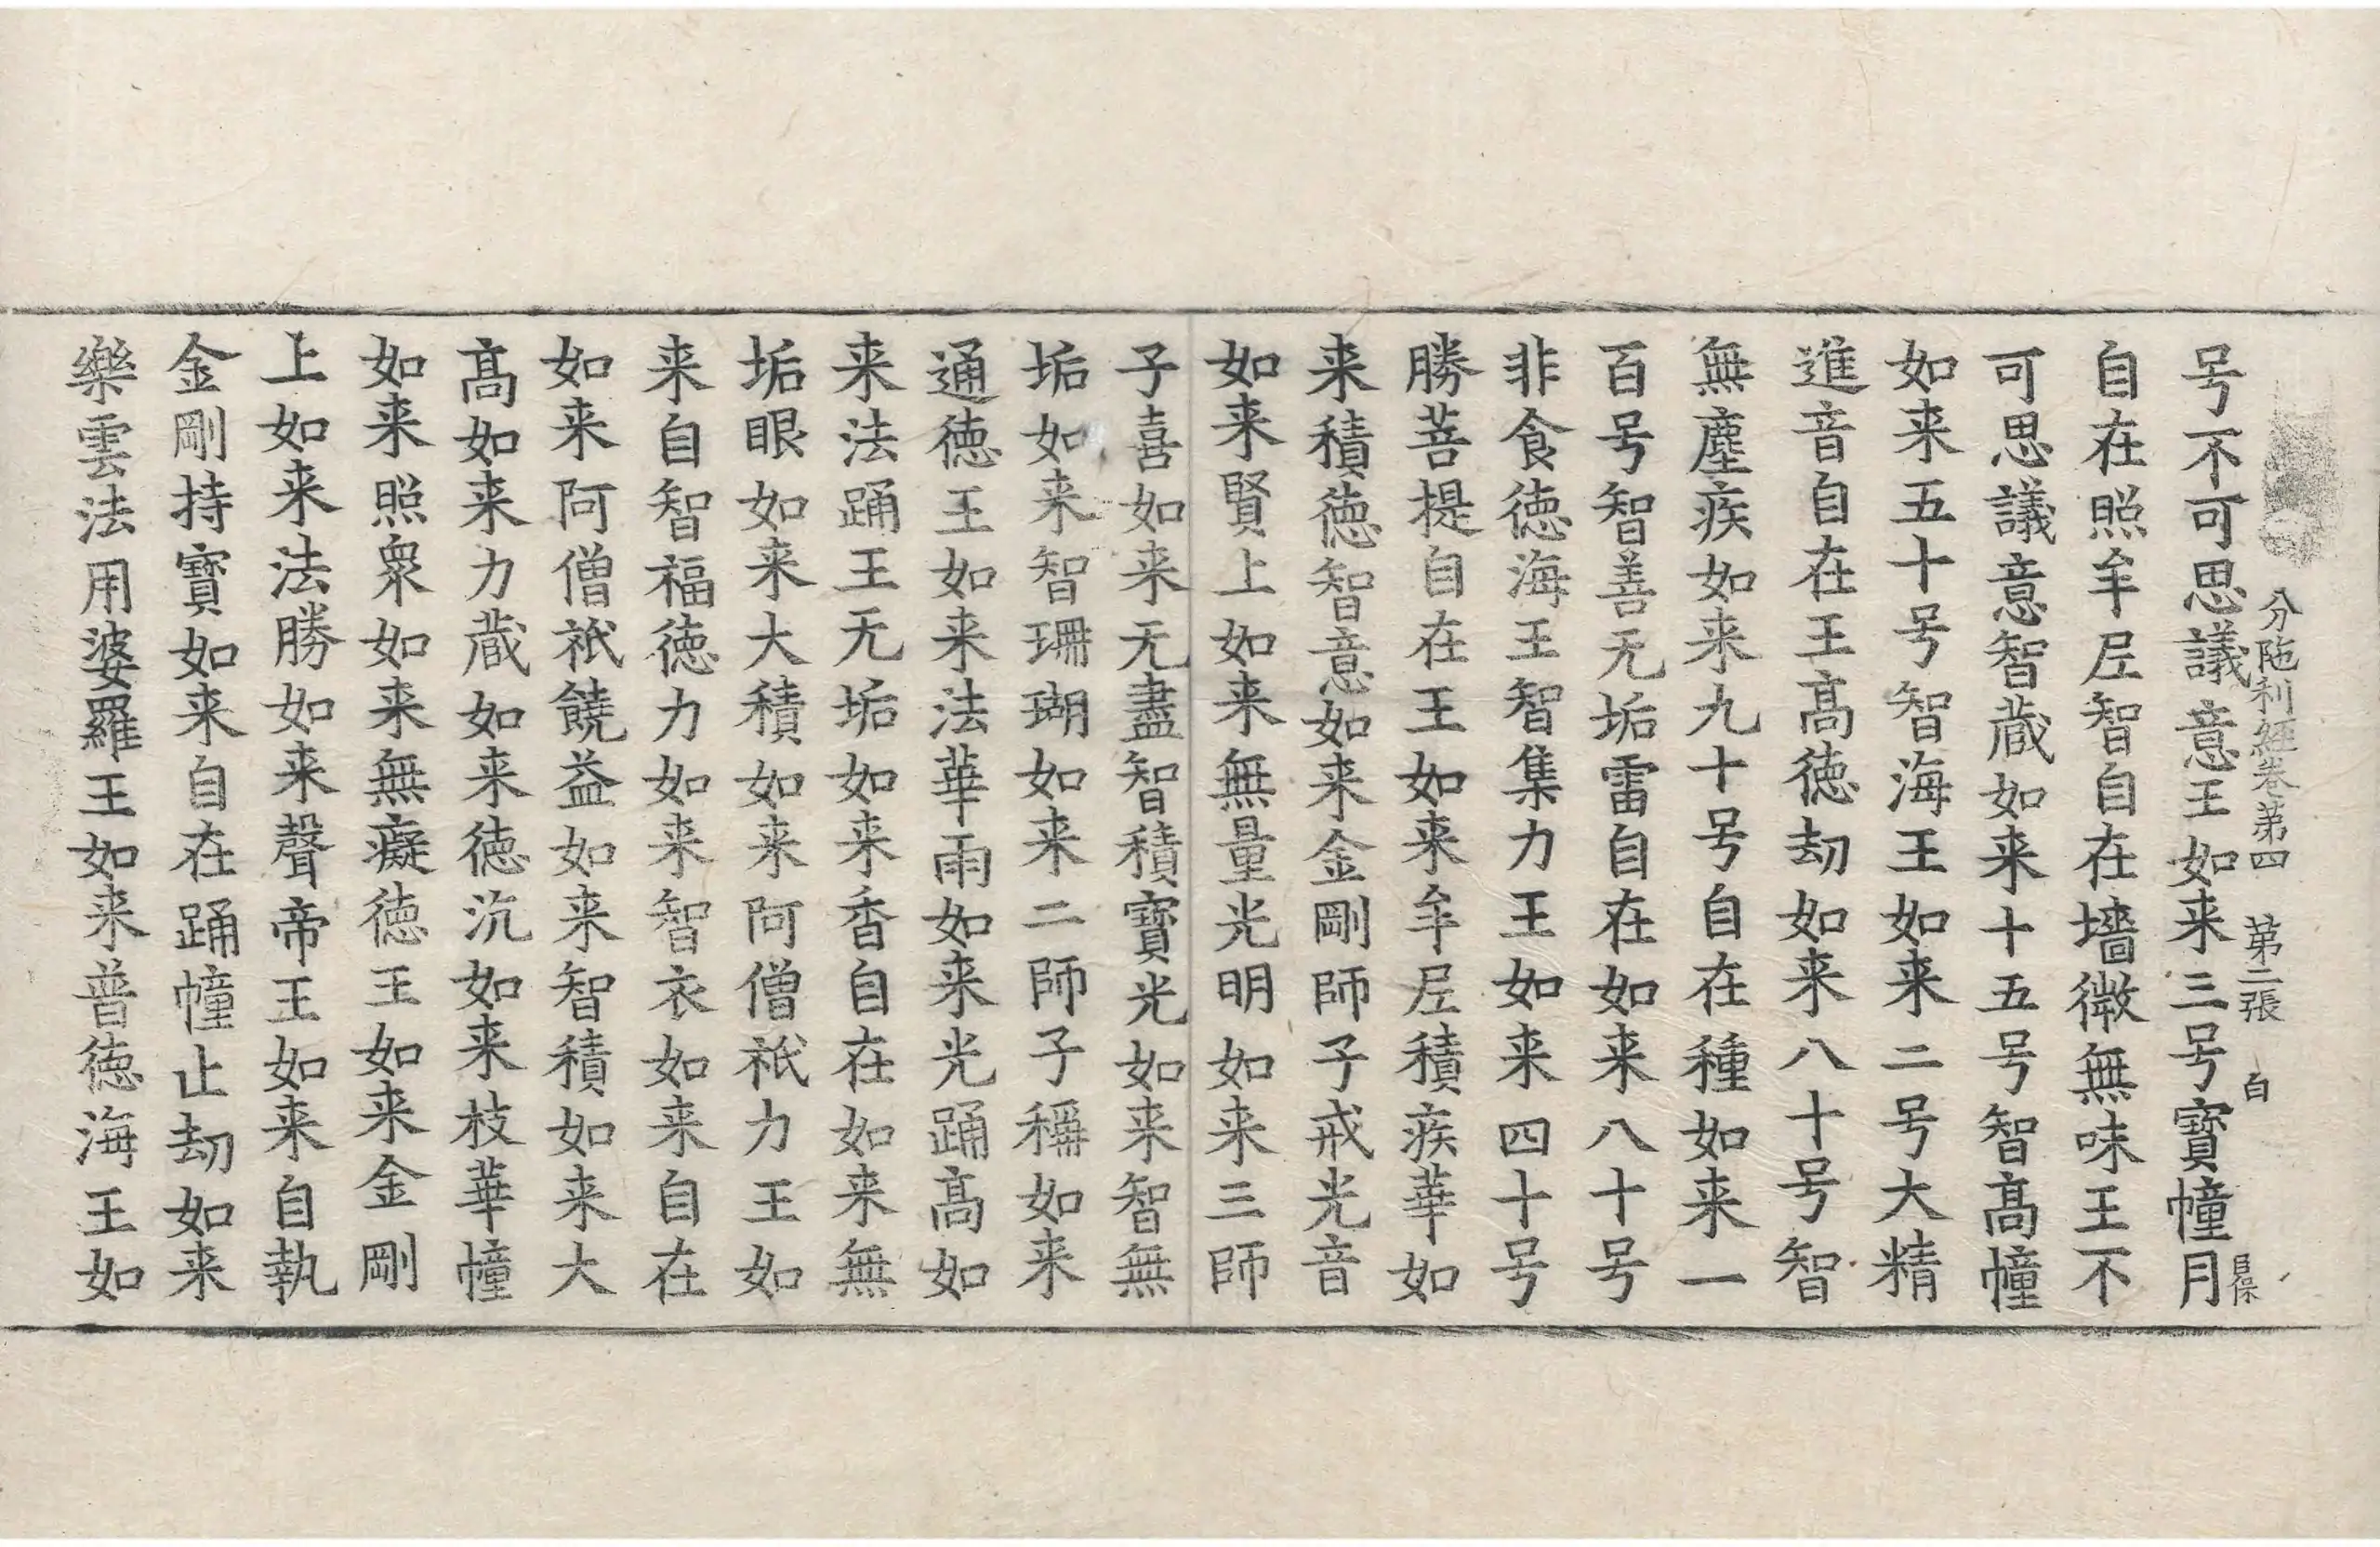 分陁利經卷第四　第二張　白
号不可思議意王如来三号寶幢月
自在照牟𡰱智自在墻微無味王不
可思議意智蔵如来十五号智髙幢
如来五十号智海王如来二号大精
進音自在王髙徳劫如来八十号智
無塵疾如来九十号自在種如来一
百号智善无垢雷自在如来八十号
非食徳海王智集力王如来四十号
勝菩提自在王如来牟𡰱積疾華如
来積徳智意如来金剛師子戒光音
如来賢上如来無量光明如来三師
子喜如来无盡智積寶光如来智無
垢如来智珊瑚如来二師子稱如来
通徳王如来法華雨如来光踊髙如
来法踊王无垢如来香自在如来無
垢眼如来大積如来阿僧祇力王如
来自智福徳力如来智衣如来自在
如来阿僧祇饒益如来智積如来大
髙如来力蔵如来徳沉如来枝華幢
如来照衆如来無癡徳王如来金剛
上如来法勝如来聲帝王如来自執
金剛持寶如来自在踊幢止劫如来
樂雲法用婆羅王如来普徳海王如